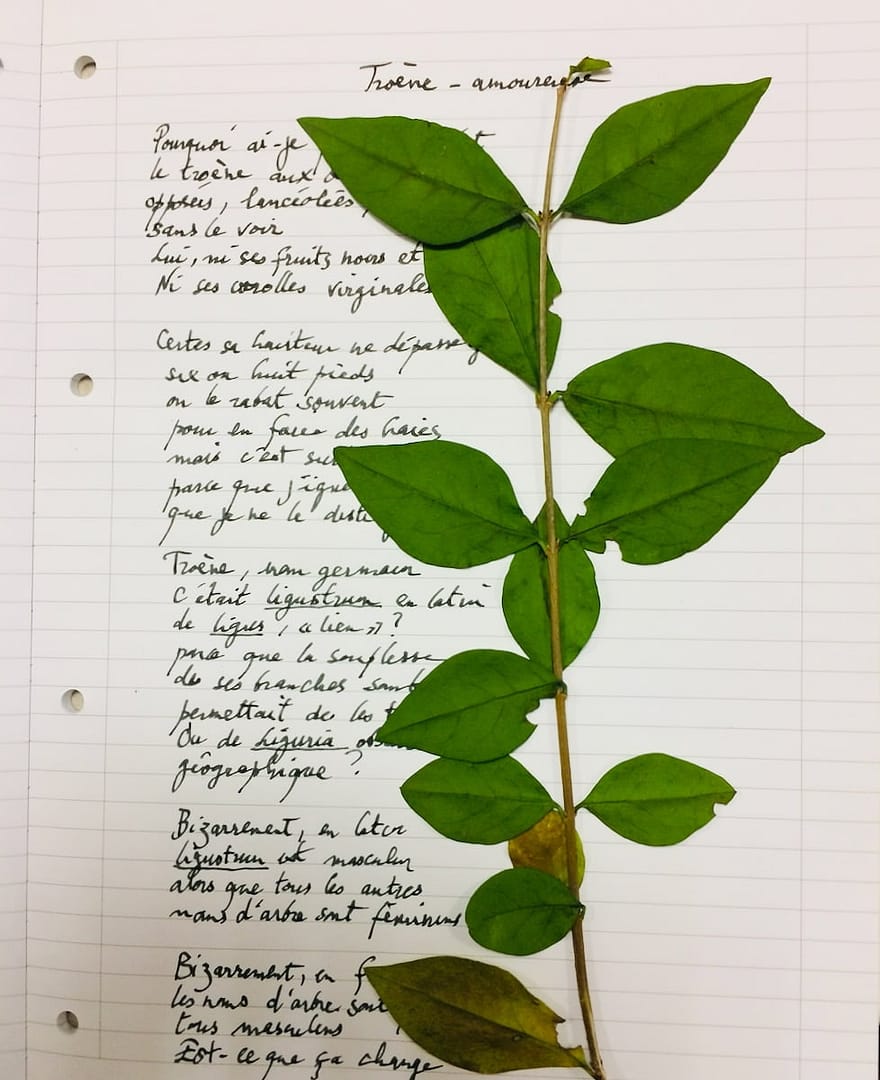 Troène - amoureuse
Pourquoi ai-je
le troène aux
opposées, lancéolées,
sans le voir
Lui, ni ses fruits noirs et
Ni ses corolles virginales
Certes sa hauteur ne dépasse
six ou huit pieds
on le rabat souvent
pour en faire des haies
mais c'est
parce que j'
que je ne le
Troène, nom germain
C'était ligustrum en latin
de ligus, « lien » ?
parce que la souplesse
de ses branches
permettait de les
Ou de Liguria
géographique ?
Bizarrement, en latin
ligustrum est masculin
alors que tous les autres
noms d'arbre sont féminins
Bizarrement, en
les noms d'arbre sont
tous masculins
Est-ce que ça change